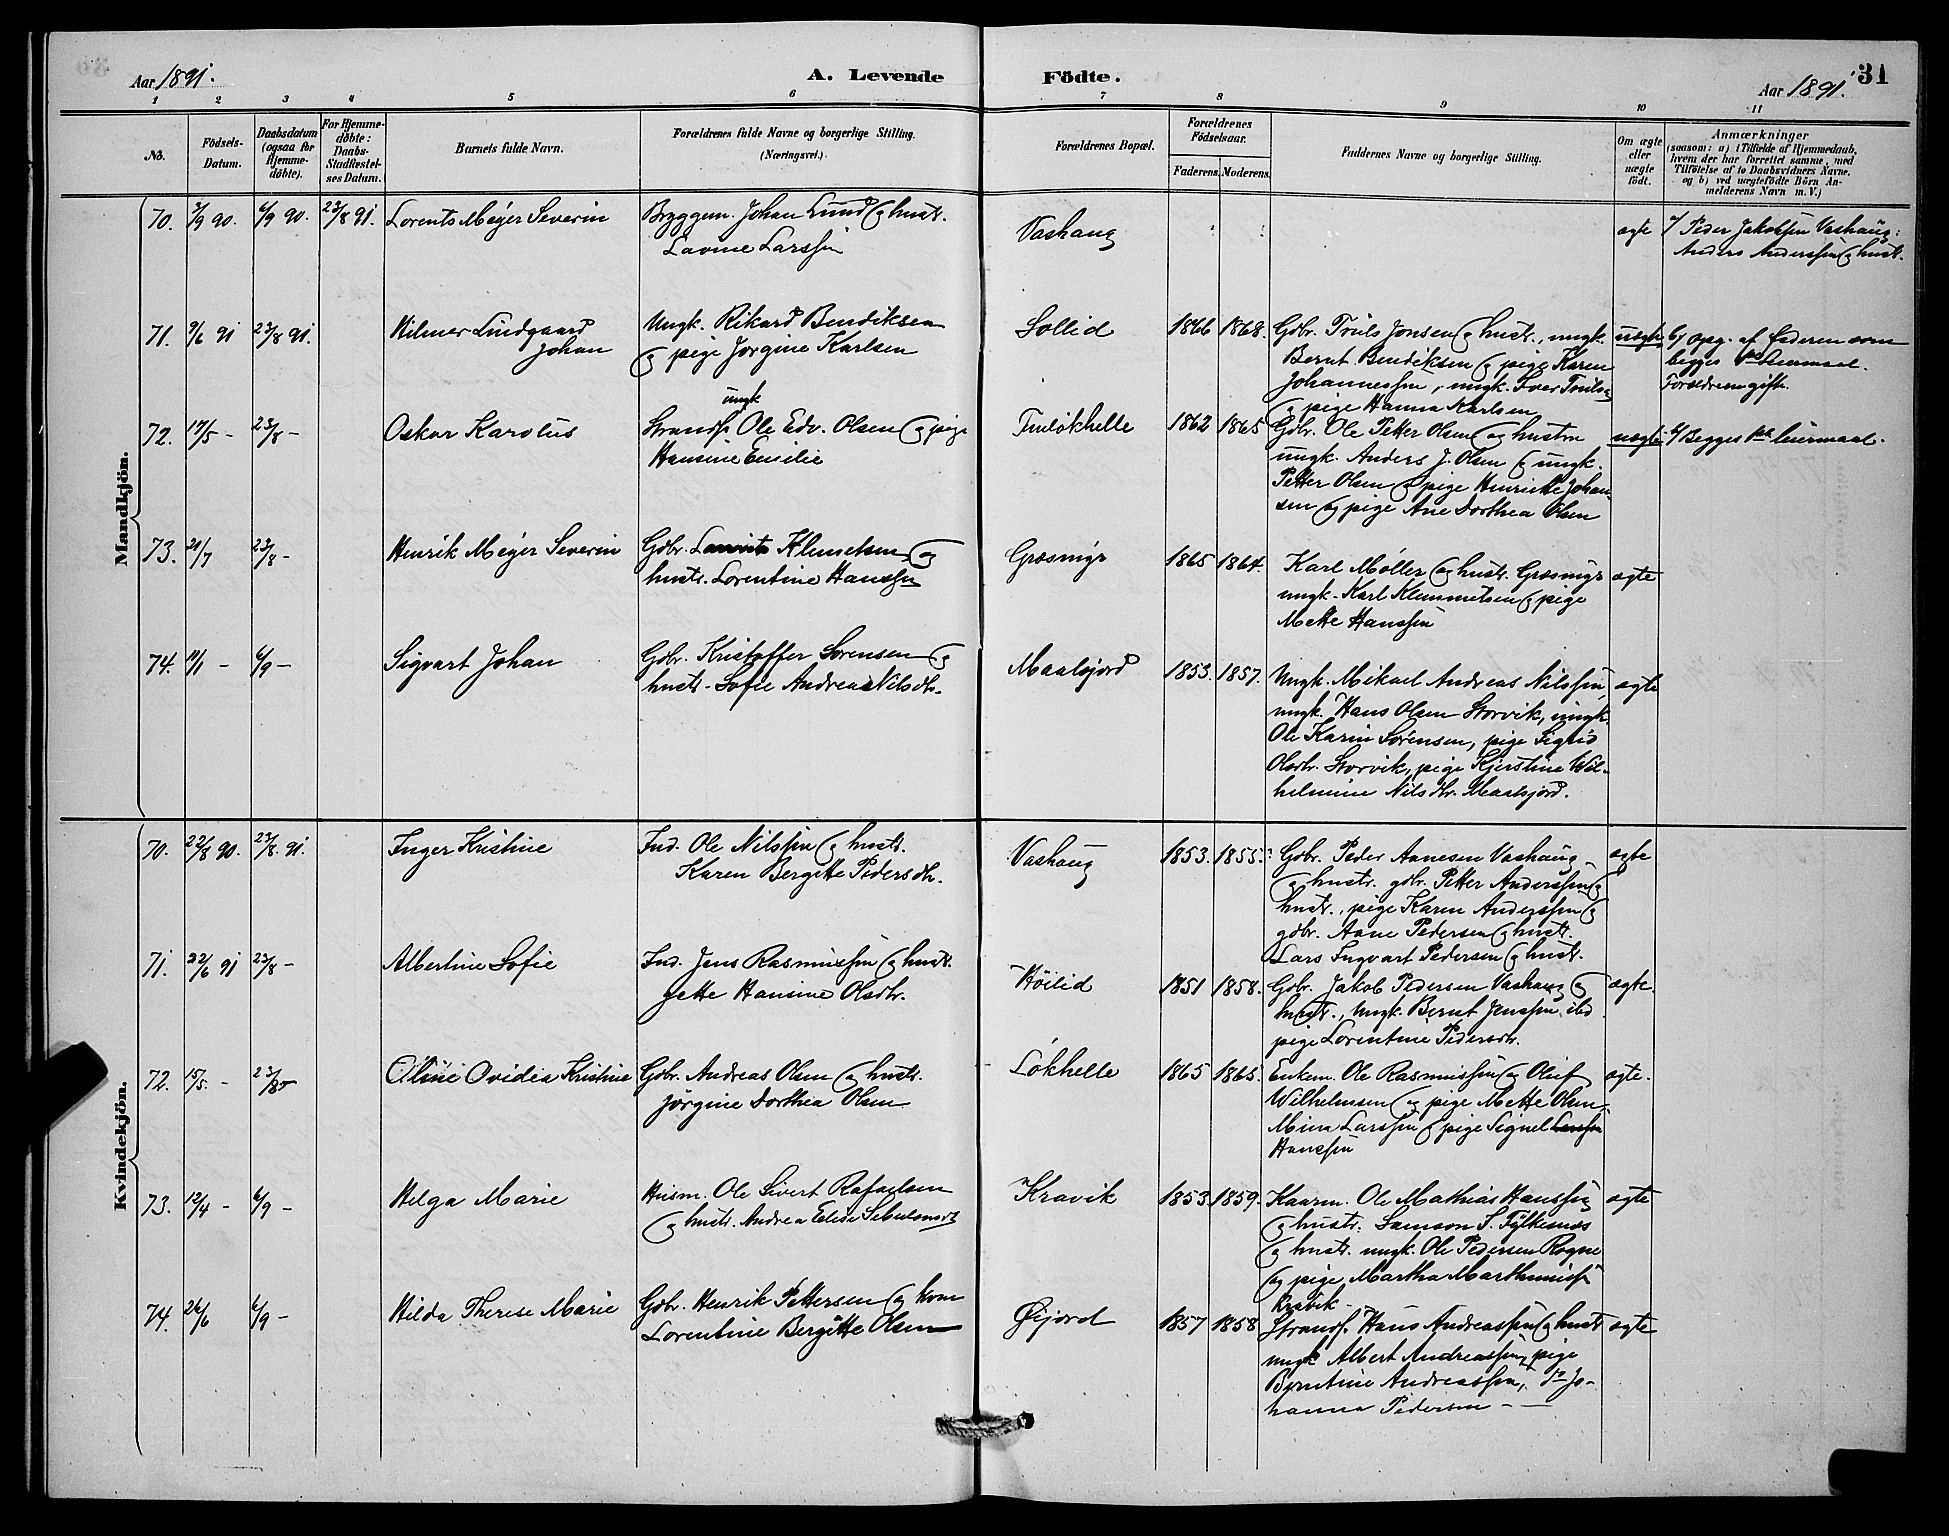 Aar 1891.
A. Levende Födte.
Aar 1891.
31
1 2 3 4 5 6 7 8 9 10 11
No.
Födsels-Datum.
Daabsdatum (ogsaa for Hjemmedöbte).
For Hjemmedöbte: Daabs-Stadfestelses Datum.
Barnets fulde Navn.
Forældrenes fulde Navne og borgerlige Stilling. (Næringsvei.)
Forældrenes Bopæl.
Forældrenes Födselsaar.
Faderens. Moderens.
Faddernes Navne og borgerlige Stilling.
Om ægte eller uægte födt.
Anmærkninger
(saasom: a) i Tilfælde af Hjemmedaab,
hvem der har forrettet samme, med
Tilföielse af to Daabsvidners Navne.
og b) ved uægtefödte Börn Anmelderens Navn m. V.)
Mandkjön.
70. 3/9 90. 6/9 90. 23/8 91. Lorents Meyer Severin
Bryggem. Johan Lund og hustr.
Lavine Larssen
Vashaug
ægte
a/ Peder Jakobsen Vashaug:
Anders Anderssen og hustr.
71. 9/6 91 23/8 91. Hilmer Lindgaard
Johan
Ungk. Rikard Bendiksen
og pige Jørgine Karlsen
Sollid 1866 1868.
Gdbr. Truls Jonsen og hustr., ungk.
Bernt Bendiksen og pige Karen
Johannessen, ungk. Iver Trulsen
og pige Hanna Karlsen
uægte
b/ opg. af Faderen som
begges 1ste leiermaal.
Forældrene gift.
72. 17/5 - 23/8 - Oskar Karolus
ungk
Strands. Ole Edv. Olsen og pige
Hansine Emilie
Finløkhelle 1862 1865
Gdbr. Ole Petter Olsen og hustru
ungk. Anders J. Olsen og ungk.
Petter Olsen og pige Henrikke Johansen
og pige Ane Dorthea Olsen
uægte
b/ Begges 1ste leiermaal.
73. 21/7 23/8 - Henrik Meyer Severin
Gdbr. Laurits Klemetsen og
hustr. Lorentine Hanssen
Græsmyr 1865 1864.
Karl Møller og hustr. Græsmyr
ungk. Karl Klemmetsen og pige
Mette Hanssen
ægte
74. 11/1 - 6/9 - Sigvart Johan
Gdbr. Kristoffer Sørensen og
hustr. Sofie Andrea Nilsdtr.
Maalsjord 1853. 1857.
Ungk. Mikael Andreas Nilssen
ungk. Hans Olsen Storvik, ungk.
Ole Karin Sørensen, pige Sigrid
Olsdtr. Storvik, pige Kjerstine Wilhelmine
Nilsdtr. Maalsjord.
ægte
Kvindekjön.
70. 22/8 90. 23/8. 91. Inger Kristine
Ind. Ole Nilssen og hustr.
Karen Bergitte Pedersdtr.
Vashaug 1853. 1855.
Gdbr. Peder Aanesen Vashaug
og hustr. gdbr. Petter Anderssen og
hustr., pige Karen Anderssen og
gdbr. Aane Pedersen og hustr.
Lars Ingvart Pedersen og hustr.
ægte
71. 22/6 91 23/8 - Albertine Sofie
Ind. Jens Rasmussen og hustr.
Jette Hansine Olsdtr.
Höilid 1851 1858.
Gdbr. Jakob Pedersen Vashaug og
hustr., ungk. Bernt Jenssen ibd
pige Lorentine Pedersdtr.
ægte.
72. 15/5. - 23/8 - Oline Ovidia Kristine
Gdbr. Andreas Olsen og hustr.
Jørgine Dorthea Olsen
Løkhelle 1865 1865.
Enkem. Ole Rasmussen og Oluf
Wilhelmsen og pige Mette Olsen,
Mina Larssen og pige Signel
Hanssen
ægte.
73. 12/4 - 6/9 - Helga Marie
Husm. Ole Sivert Rafaelsen
og hustr. Andrea Elise Sebulonsdt
Kravik 1853 1859.
Kaarm. Ole Mathias Hanssen
og hustr. Samson S. Fylkesnes
og hustr. ungk. Ole Pedersen Rogne
og pige Martha Marthinuss
Kravik -
ægte
74. 26/6 6/9 - Hilda Therese Marie
Gdbr. Henrik Pettersen og kone
Lorentine Bergitte Olsen
Øijord 1857 1858
Strands. Hans Andreassen og hustr
ungk Albert Andreassen, pige
Berntine Andreassen, do Johanna
Pedersen -
ægte